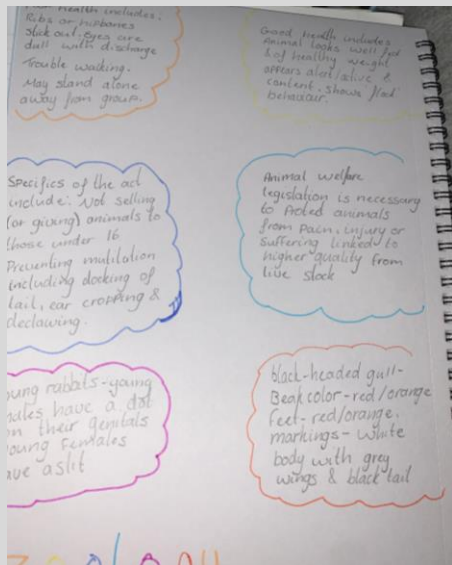 health includes:
Ribs or hipbones
stick out. Eyes are
dull with discharge
Trouble walking.
May stand alone
away from group.
Good health includes
Animal looks well fed
& of healthy weight
appears alert/alive &
content. Shows flock
behaviour.
Specifics of the act
include: Not selling
(or giving) animals to
those under 16
Preventing mutilation
including docking of
tail, ear cropping &
declawing.
Animal welfare
legislation is necessary
to Protect animals
from Pain, injury or
Suffering linked to
higher quality from
live stock
young rabbits-young
males have a dot
on their genitals
young females
have a slit
black-headed gull-
Beak color-red/orange
feet-red/orange.
markings-white
body with grey
wings & black tail
zoology